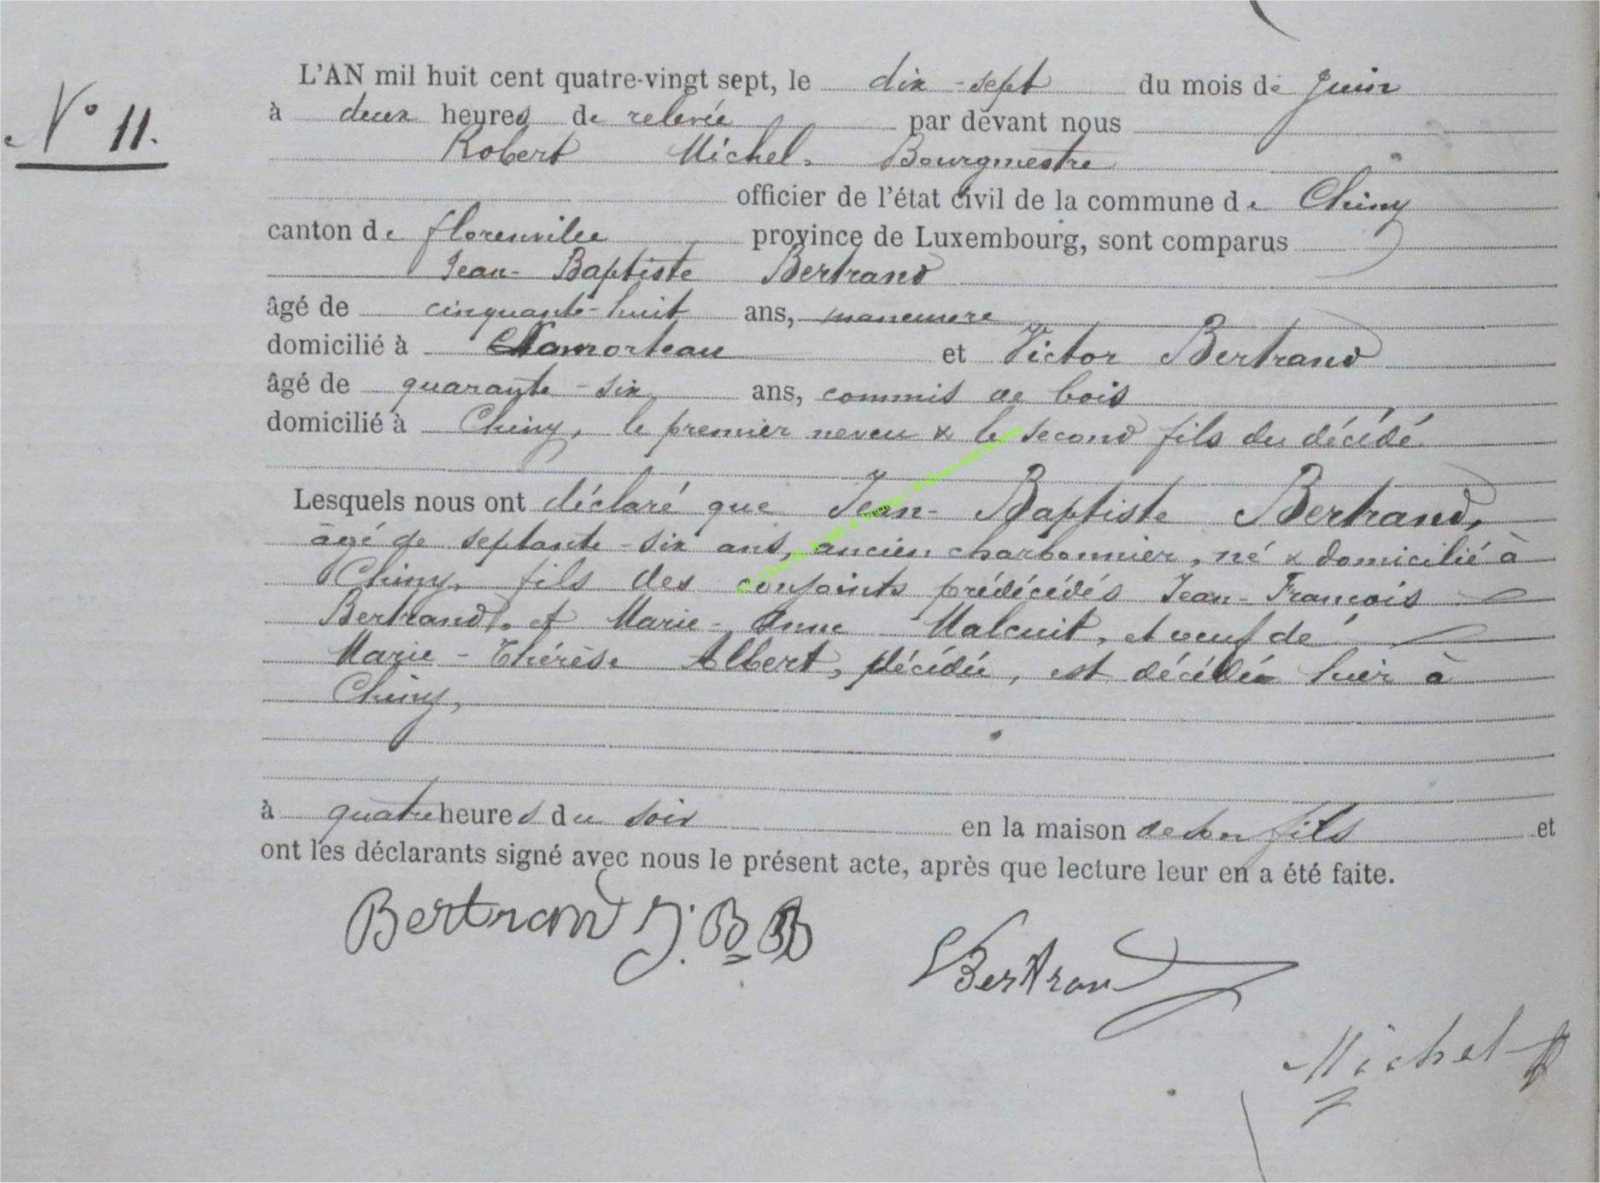 N° 11.
L'AN mil huit cent quatre-vingt sept, le dix-sept du mois de Juin
à deux heures de relevée par devant nous
Robert Michel. Bourgmestre
officier de l'état civil de la commune de Chiny
canton de florenville province de Luxembourg, sont comparus
Jean-Baptiste Bertrand
âgé de cinquante-huit ans, manœuvre
domicilié à et Victor Bertrand
âgé de quarante-six ans, commis de bois
domicilié à Chiny, le premier neveu & le second fils du décédé
Lesquels nous ont déclaré que Jean-Baptiste Bertrand,
âgé de septante-six ans, ancien charbonnier, né & domicilié à
Chiny, fils des conjoints prédécédés Jean-François
Bertrand, et Marie-Anne Malcuit, et veuf de
Marie-Thérèse Albert, décédée, est décédé hier à
Chiny,
à quatre heures du soir en la maison de son fils et
ont les déclarants signé avec nous le présent acte, après que lecture leur en a été faite.
Bertrand J. B
VBertrand
Michel R